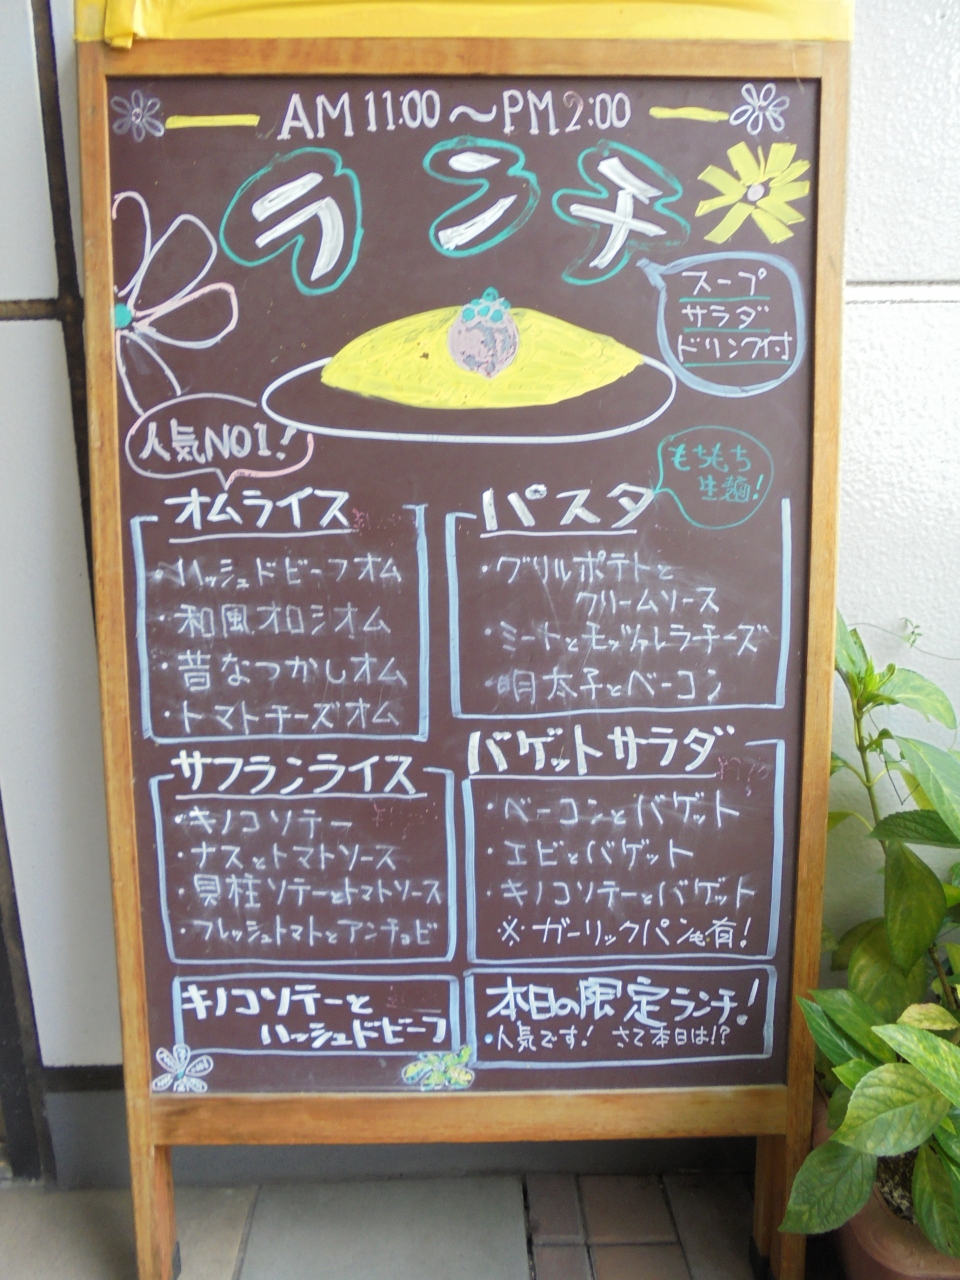 AM11:00～PM2:00
ランチ
スープ
サラダ
ドリンク付
人気NO1!
オムライス
・ハッシュドビーフオム
・和風オロシオム
・昔なつかしオム
・トマトチーズオム
もちもち
生麺!
パスタ
・グリルポテトと
クリームソース
・ミートとモッツァレラチーズ
・明太子とベーコン
サフランライス
・キノコソテー
・ナスとトマトソース
・貝柱ソテーとトマトソース
・フレッシュトマトとアンチョビ
バゲットサラダ
・ベーコンとバゲット
・エビとバゲット
・キノコソテーとバゲット
※ガーリックパンも有!
キノコソテーと
ハッシュドビーフ
本日の限定ランチ!
・人気です! さて本日は!?